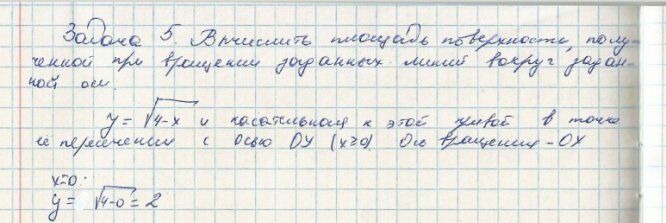 Задача 5. Вычислить площадь поверхности, полу-
ченной при вращении заданных линий вокруг задан-
ной оси.
y = √4-x и касательная к этой кривой в точке
её пересечения с осью OY (x≥0). Ось вращения - OX
x=0:
y = √4-0 = 2